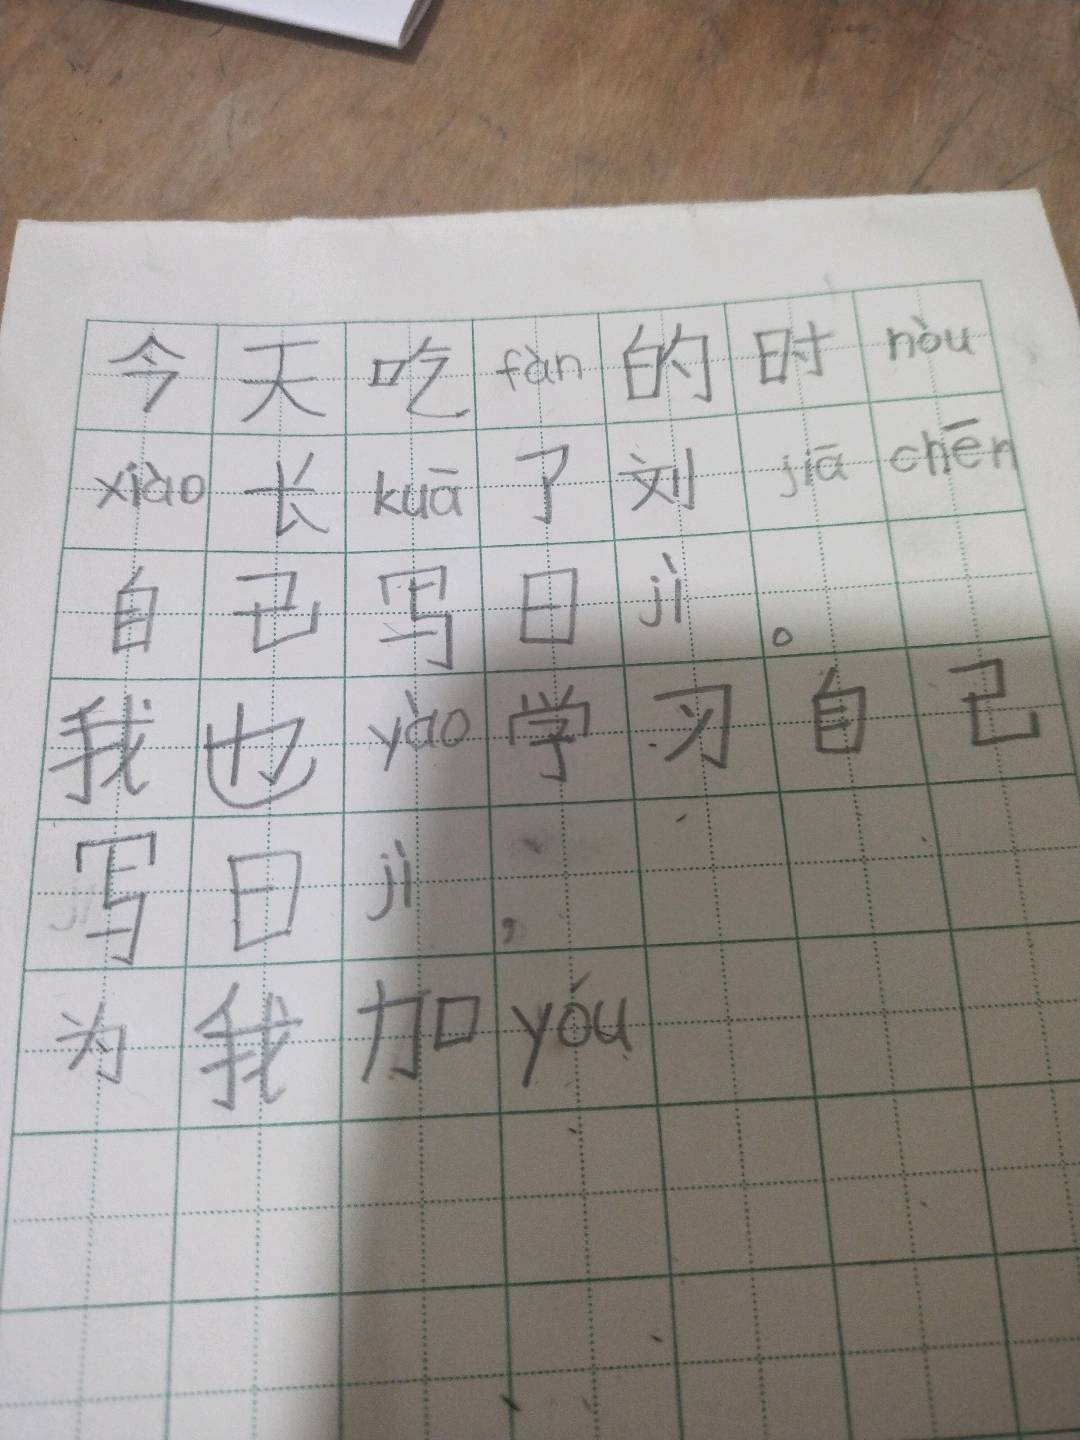 今天吃fàn的时hòu
xiào长kuā了刘jiā chēn
自己写日jì。
我也yào学习自己
写日jì,
为我加yóu